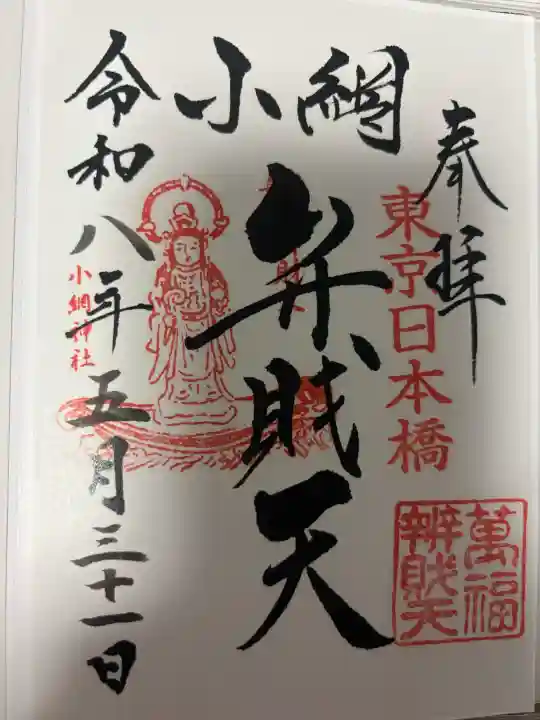 奉拝
東京日本橋
萬福
辨財天
小網
弁財天
小網神社
令和八年五月三十一日